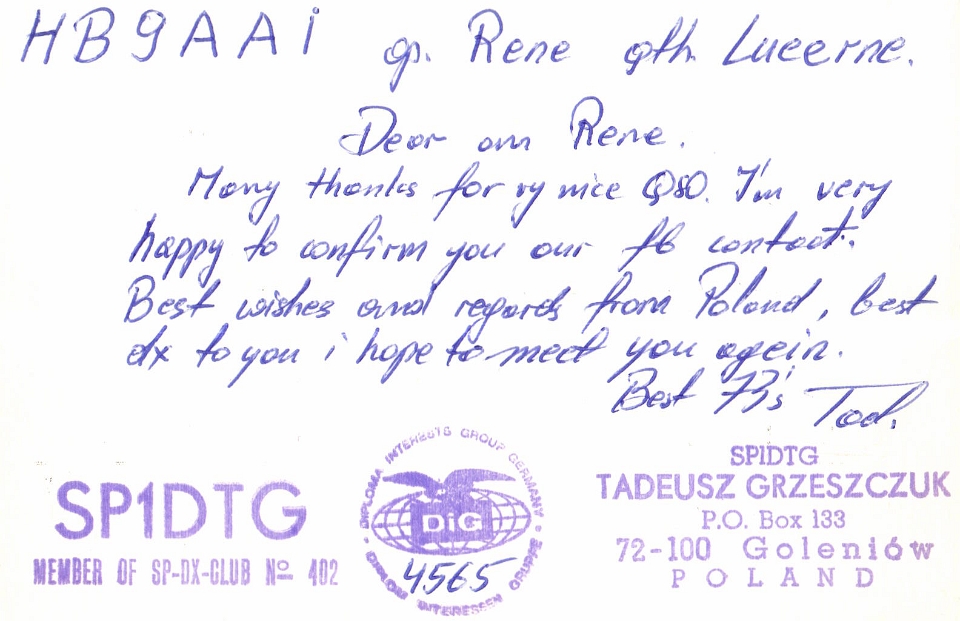 HB9AAI op. Rene qth. Lucerne.
Dear om Rene.
Many thanks for vy nice QSO. I'm very
happy to confirm you our fb contact.
Best wishes and regards from Poland, best
dx to you i hope to meet you agein.
Best 73's Tad.
SP1DTG
MEMBER OF SP-DX-CLUB No 402
DIPLOMA INTERESTS GROUP GERMANY
DIG
4565
DIPLOM INTERESSEN GRUPPE
SP1DTG
TADEUSZ GRZESZCZUK
P.O. Box 133
72-100 Goleniów
POLAND